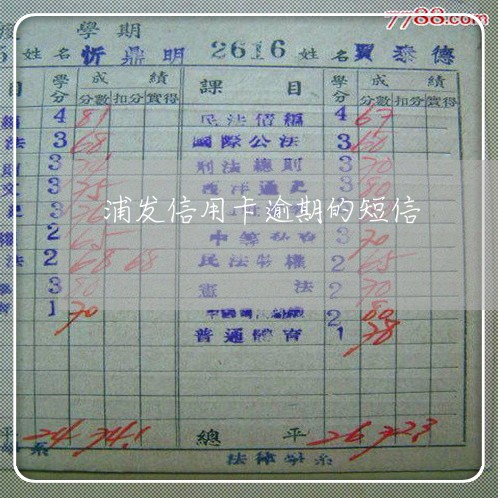 7788.com
學期
5 姓名 忻鼎明 2616 姓名 賈泰德
目 學分 成績 課目 學分 成績
分數 扣分 實得 分數 扣分 實得
4 81 民法債編 4 67
法 3 68 國際公法 3 60
3 刑法總則 3 70
3 75 西洋通史 3 80
浦发信用卡逾期的短信
2 65 3 70
法 2 68 68 民法物權 2 65
3 80 憲法 2 70
1 70 2 80
普通體育 1 78
平 24 74.1 總平 26 72.3
系 法律學系